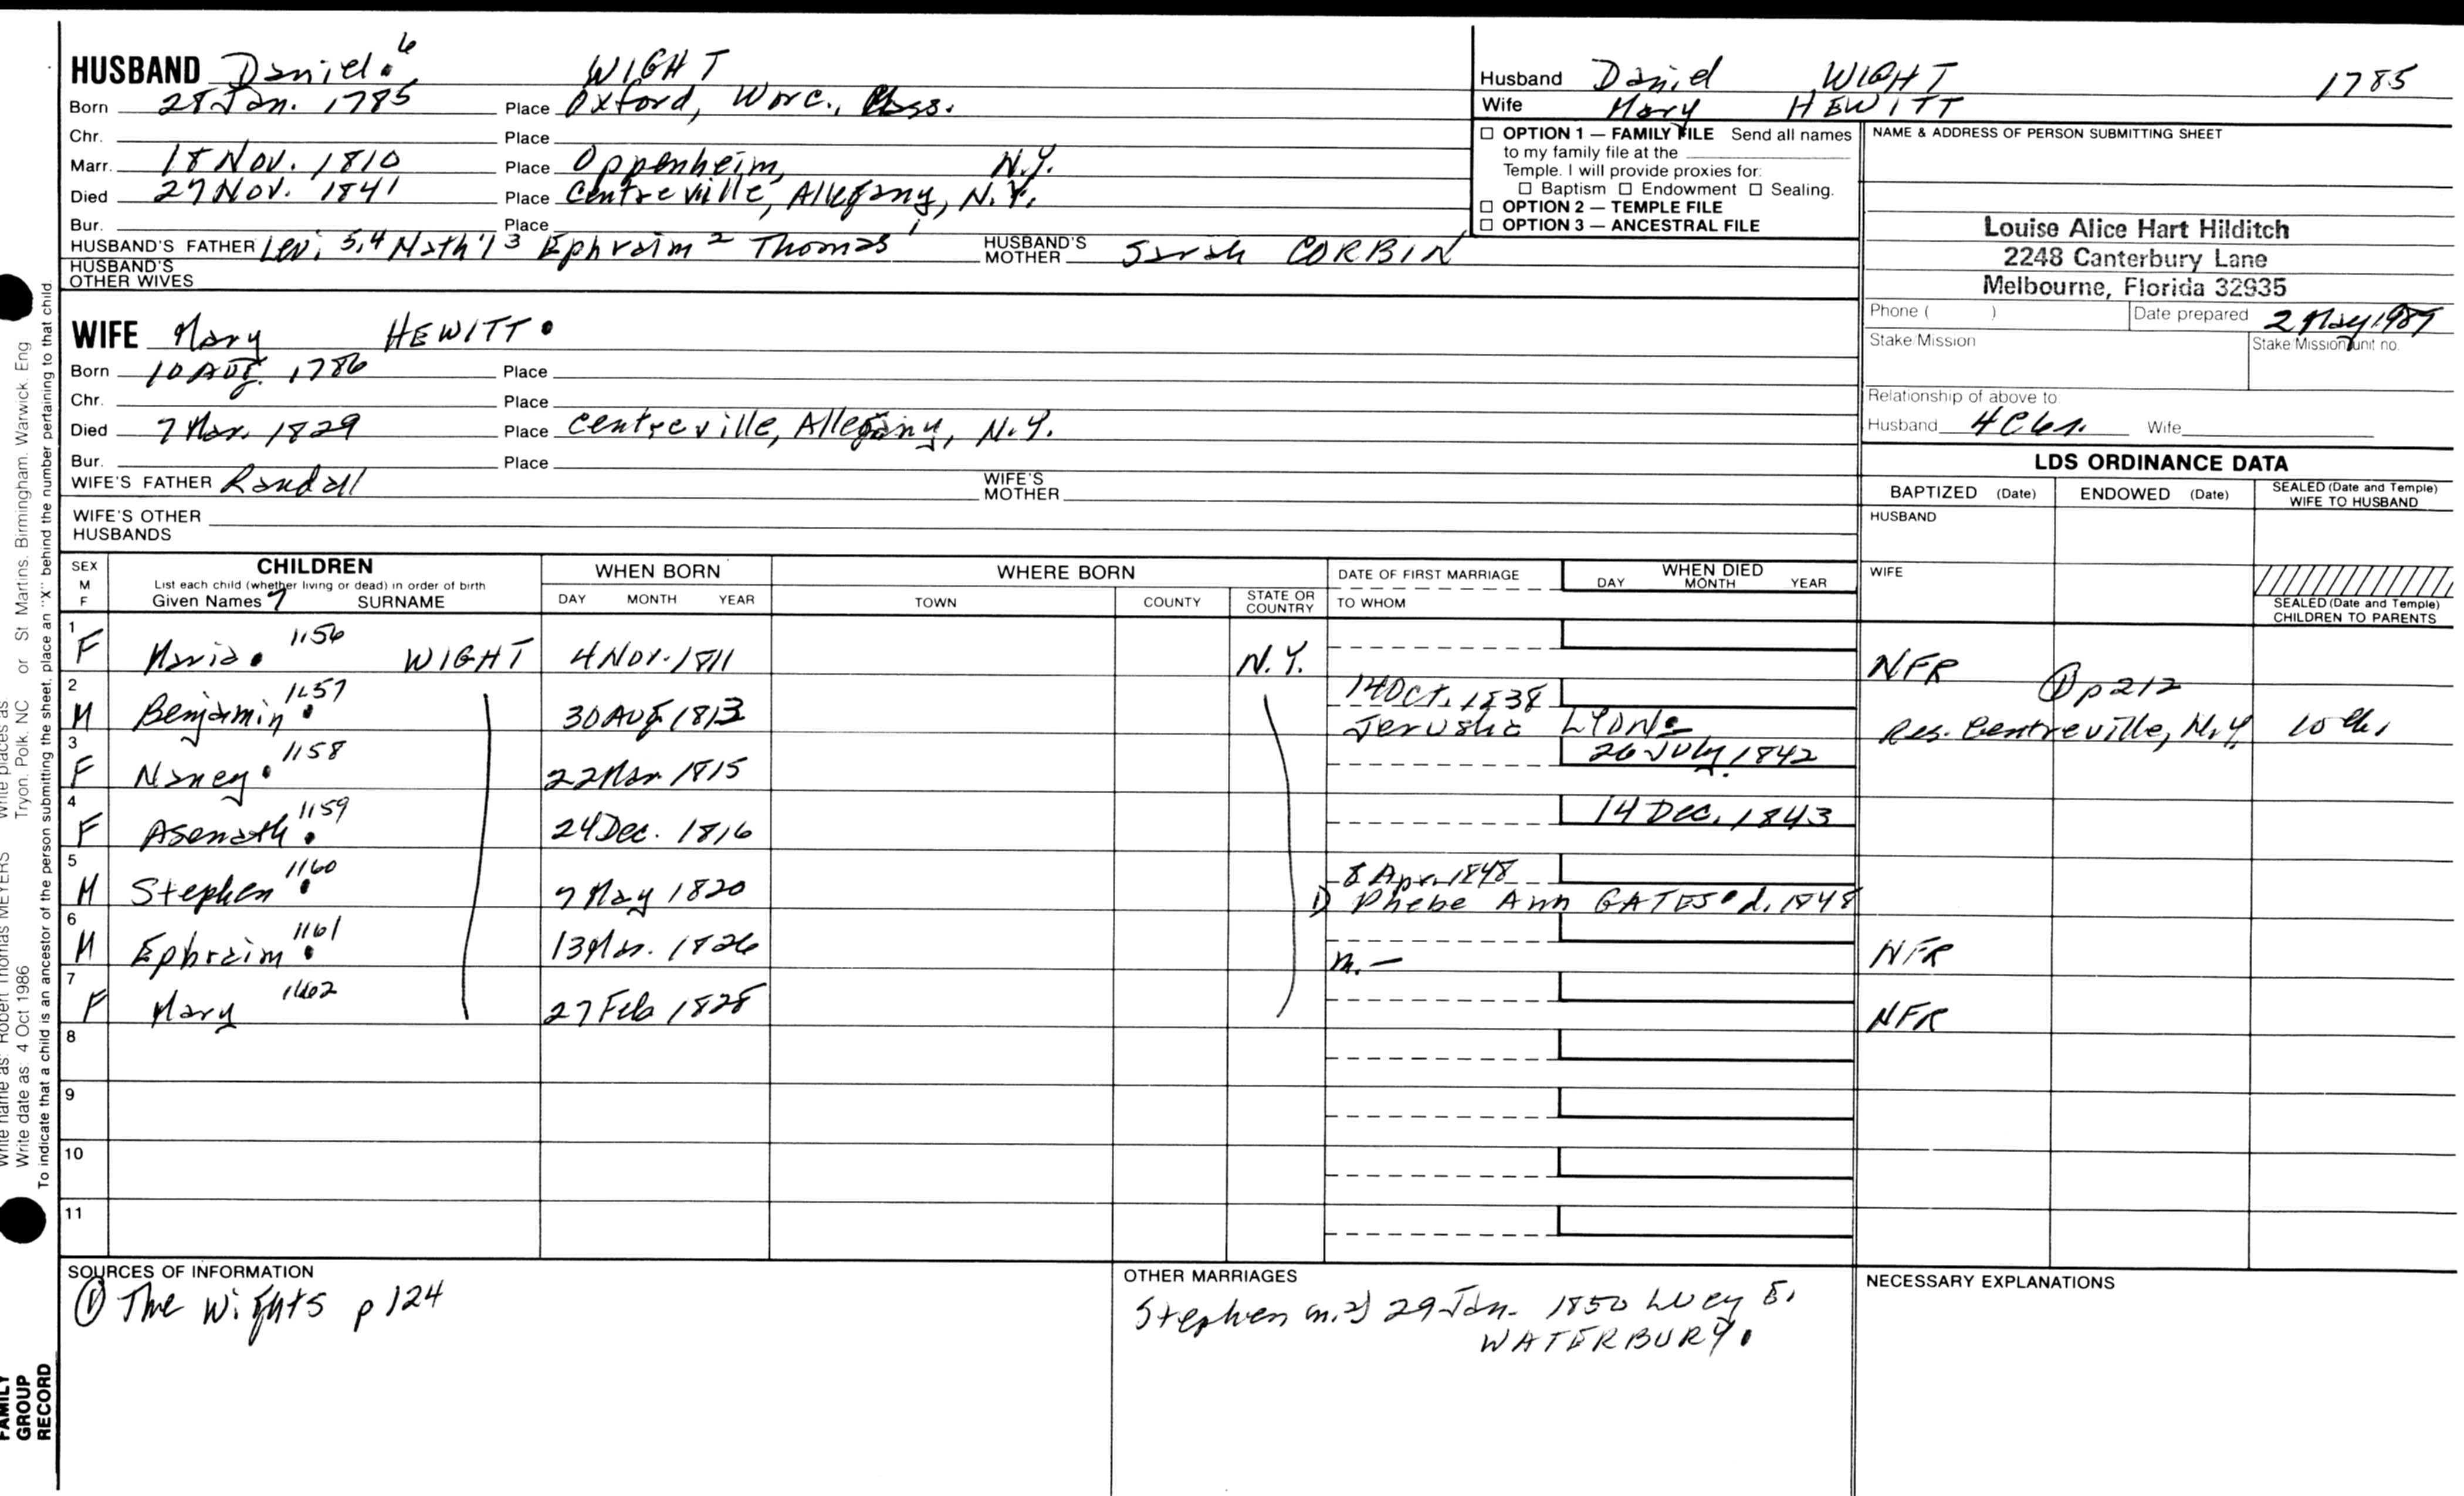 HUSBAND Daniel. 6 WIGHT
Born 28 Jan. 1785 Place Oxford, Worc., Mass.
Chr. Place
Marr. 18 Nov. 1810 Place Oppenheim, N.Y.
Died 27 Nov. 1841 Place Centreville, Allegany, N.Y.
Bur. Place
HUSBAND'S FATHER Levi 5,4 Nath'l 3 Ephraim 2 Thomas 1 HUSBAND'S MOTHER Sarah CORBIN
HUSBAND'S OTHER WIVES
Husband Daniel WIGHT 1785
Wife Mary HEWITT
☐ OPTION 1 — FAMILY FILE Send all names
to my family file at the
Temple. I will provide proxies for:
☐ Baptism ☐ Endowment ☐ Sealing.
☐ OPTION 2 — TEMPLE FILE
☐ OPTION 3 — ANCESTRAL FILE
NAME & ADDRESS OF PERSON SUBMITTING SHEET
Louise Alice Hart Hilditch
2248 Canterbury Lane
Melbourne, Florida 32935
Phone ( ) Date prepared 2 May 1989
Stake/Mission Stake/Mission unit no.
Relationship of above to
Husband 4C6r. Wife
WIFE Mary HEWITT.
Born 10 Aug. 1786 Place
Chr. Place
Died 7 Mar. 1829 Place Centreville, Allegany, N.Y.
Bur. Place
WIFE'S FATHER Randall WIFE'S MOTHER
WIFE'S OTHER HUSBANDS
LDS ORDINANCE DATA
BAPTIZED (Date) ENDOWED (Date) SEALED (Date and Temple) WIFE TO HUSBAND
HUSBAND
WIFE
SEALED (Date and Temple) CHILDREN TO PARENTS
SEX M F
CHILDREN
List each child (whether living or dead) in order of birth
Given Names 7 SURNAME
WHEN BORN
DAY MONTH YEAR
WHERE BORN
TOWN COUNTY STATE OR COUNTRY
DATE OF FIRST MARRIAGE
TO WHOM
WHEN DIED
DAY MONTH YEAR
1 F Maria. 1156 WIGHT 4 Nov. 1811 N.Y. NFR
2 M Benjamin. 1157 30 Aug 1813 14 Oct. 1838 Jerusha LYON. ① p 212 Res. Centreville, N.Y. 10 ch.
3 F Nancy. 1158 22 Mar 1815 26 July 1842
4 F Asenath. 1159 24 Dec. 1816 14 Dec. 1843
5 M Stephen. 1160 7 May 1820 8 Apr. 1848 1) Phebe Ann GATES. d. 1848
6 M Ephraim. 1161 13 Mar. 1826 m. — NFR
7 F Mary 1162 27 Feb 1828 NFR
8
9
10
11
SOURCES OF INFORMATION
① The Wights p 124
OTHER MARRIAGES
Stephen m. 2) 29 Jan. 1850 Lucy E.
WATERBURY.
NECESSARY EXPLANATIONS
Write places as Tryon. Polk. NC or St Martins. Birmingham. Warwick. Eng
Write name as: Robert Thomas MEYERS
Write date as: 4 Oct 1986
To indicate that a child is an ancestor of the person submitting the sheet, place an "X" behind the number pertaining to that child.
FAMILY
GROUP
RECORD